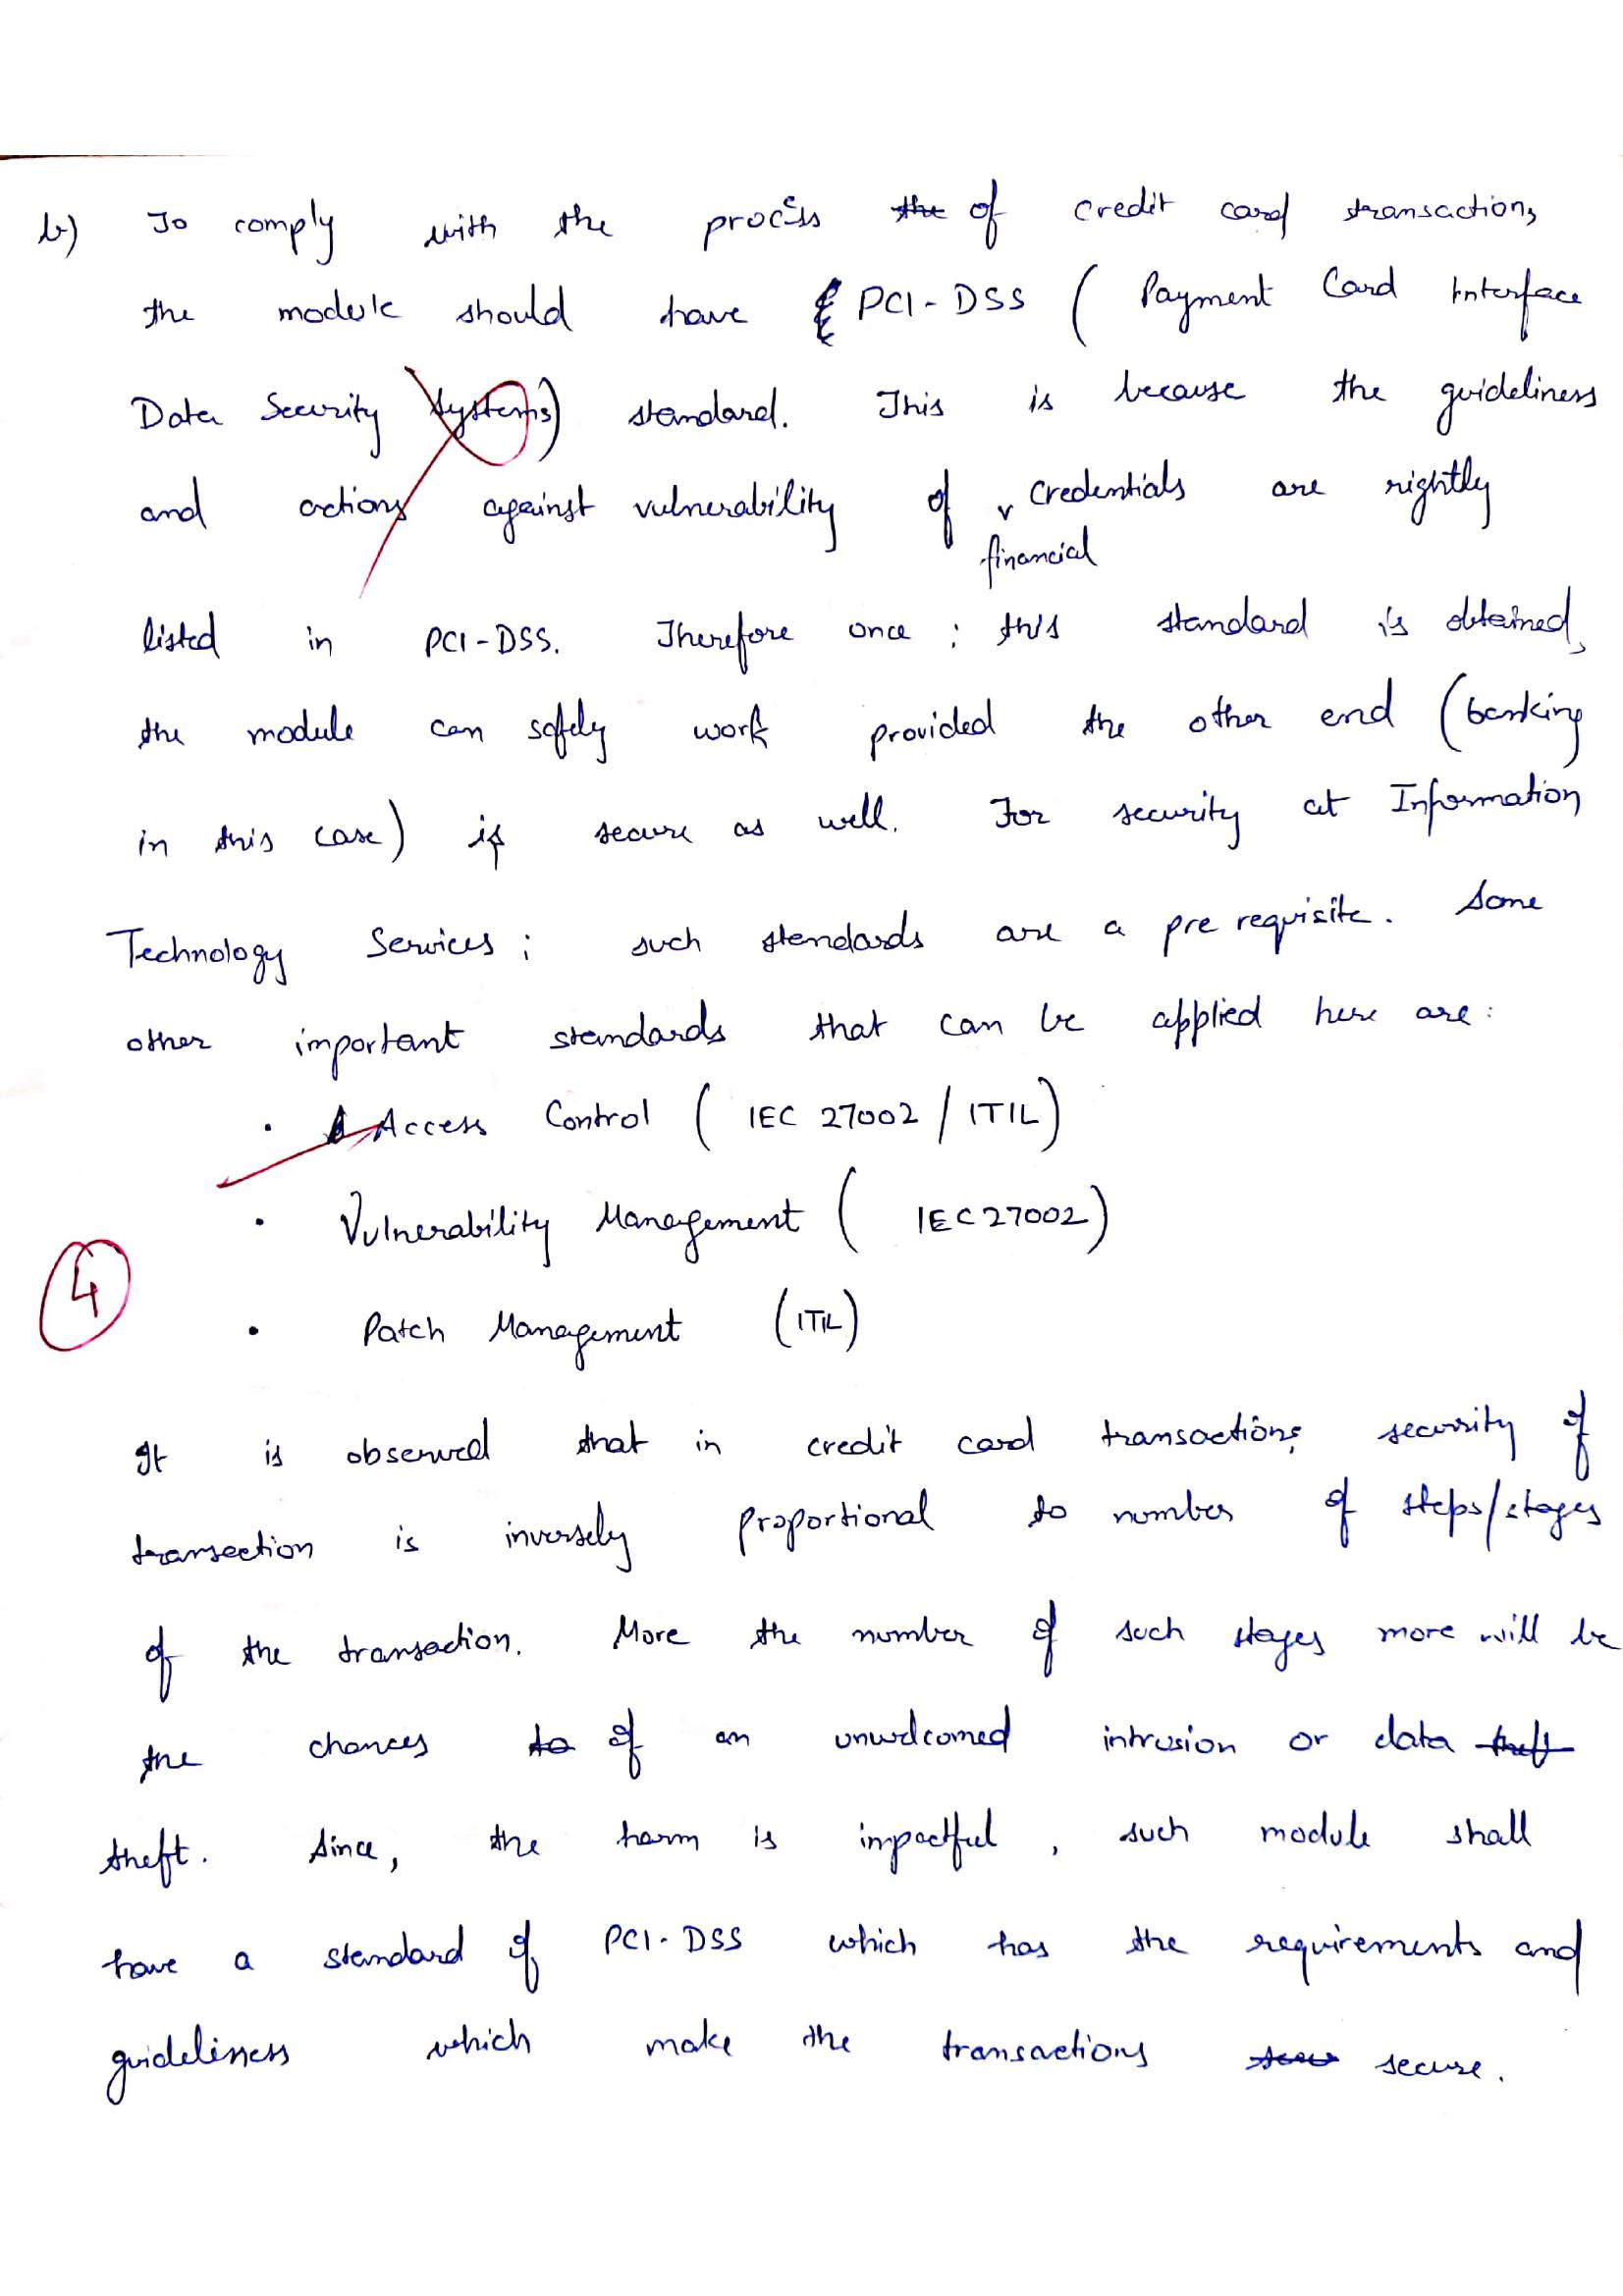 b) To comply with the process the of credit card transactions
the module should have PCI-DSS ( Payment Card Interface
Data Security Systems) standard. This is because the guideliness
and actions against vulnerability of credentials are rightly
financial
listed in PCI-DSS. Therefore once ; this standard is obtained,
the module can safely work provided the other end (banking
in this case) is secure as well. For security at Information
Technology Services ; such standards are a pre requisite. Some
other important standards that can be applied here are :
· Access Control ( IEC 27002 / ITIL)
· Vulnerability Management ( IEC 27002)
4
· Patch Management (ITIL)
It is observed that in credit card transactions security of
transaction is inversely proportional to number of steps/stages
of the transaction. More the number of such stages more will be
the chances to of an unwelcomed intrusion or data theft
theft. Since, the harm is impactful , such module shall
have a standard of PCI-DSS which has the requirements and
guideliness which make the transactions secure.